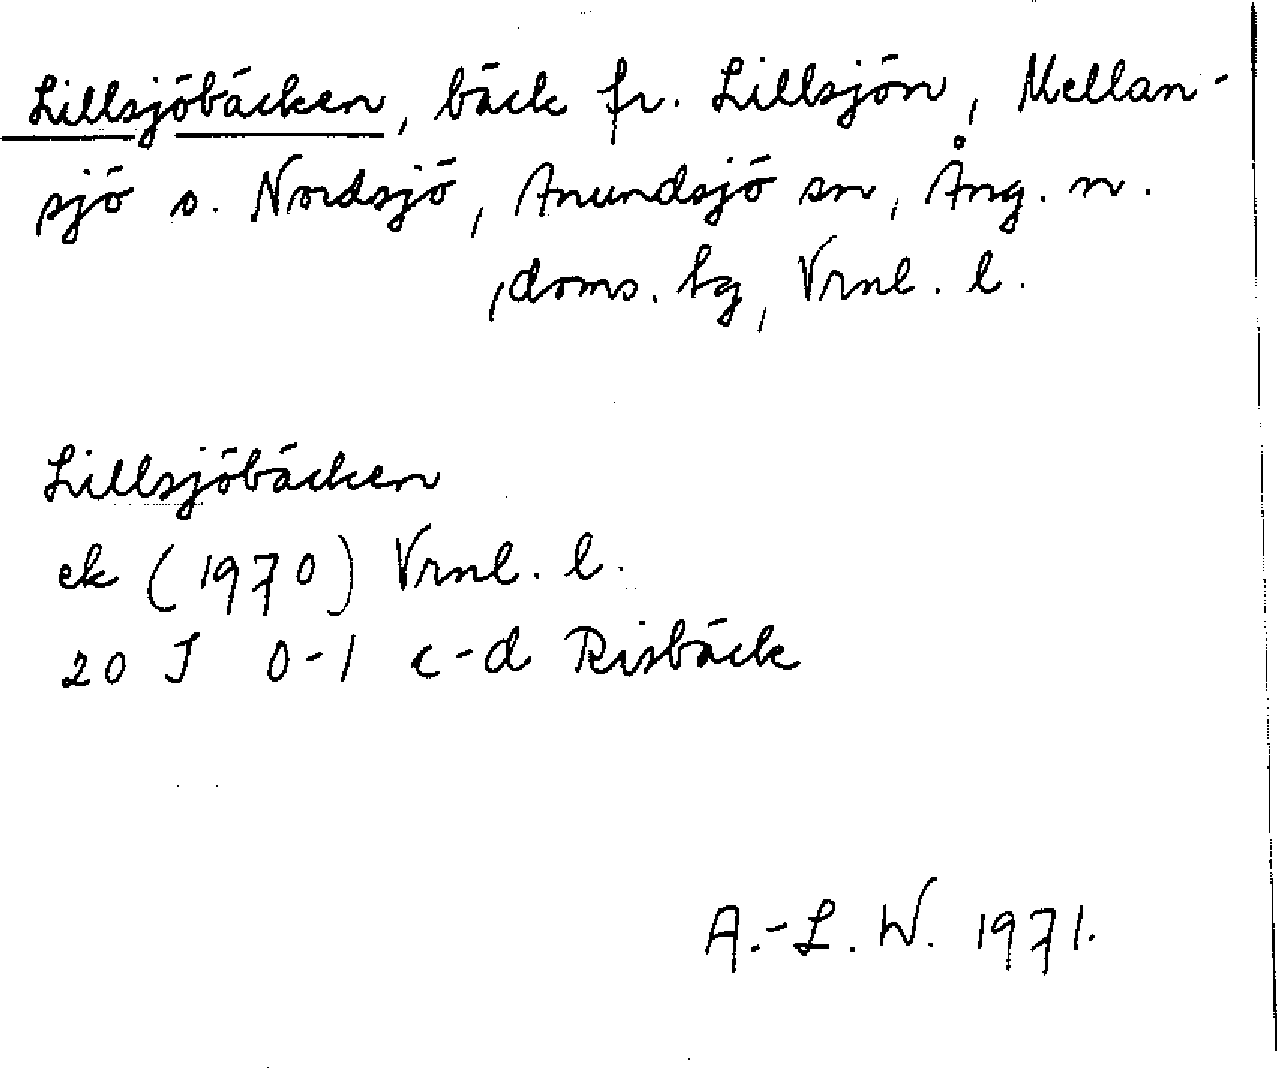 Lillsjöbäcken, bäck fr. Lillsjön, Mellan-
sjö o. Nordsjö, Anundsjö sn, Ång. n.
,doms. bg, Vrnl. l.
Lillsjöbäcken
ek (1970) Vrnl. l.
20 J 0-1 c-d Risbäck
A.-L. W. 1971.